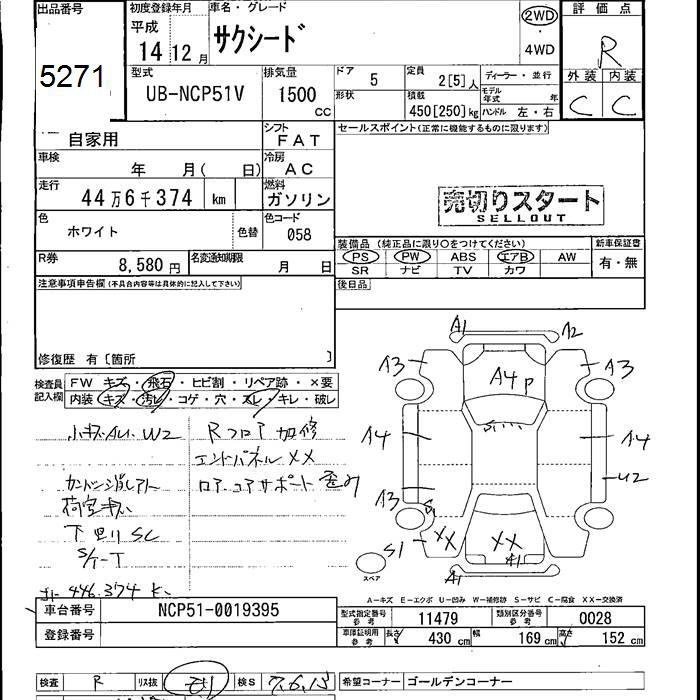 出品番号
5271
初度登録年月
平成
14 12 月
車名・グレード
サクシード
2WD
・
4WD
評価点
R
外装 内装
C C
型式
UB-NCP51V
排気量
1500
cc
ドア 5
形状
定員 2[5]人
積載
450[250]kg
ディーラー・並行
モデル年式 年
ハンドル 左・右
自家用
シフト
FAT
車検
年 月( 日)
冷房
AC
走行
44万6千374 km
燃料
ガソリン
色
ホワイト
色替
色コード
058
R券
8,580 円
名変通知期限
月 日
セールスポイント(正常に機能するものに限ります)
売切りスタート
SELLOUT
装備品 (純正品に限り〇をつけてください)
PS PW ABS エアB AW
SR ナビ TV カワ
新車保証書
有・無
後日品
注意事項申告欄(不具合内容等は具体的に記入して下さい)
修復歴 有〔箇所 〕
検査員
記入欄
FW キズ・飛石・ヒビ割・リペア跡・×要
内装・キズ・汚レ・コゲ・穴・スレ・キレ・破レ
小キズ AU. W2
Rフロア 加修
エンドパネル XX
下廻り SC
S/T-T
446.374 K
A1
A2
A3
A3
A4 P
A4
A4
U2
A3
S1
XX
XX
A1
A1
スペア
A-キズ E-エクボ U-凹み W-補修跡 S-サビ C-腐食 XX-交換済
車台番号
NCP51-0019395
登録番号
型式指定番号
参考
11479
類別区分番号
参考
0028
車庫証明用
参考
長さ 430 cm
幅 169 cm
高さ 152 cm
検査 R
リス抜
検S 7.6.13
希望コーナー ゴールデンコーナー